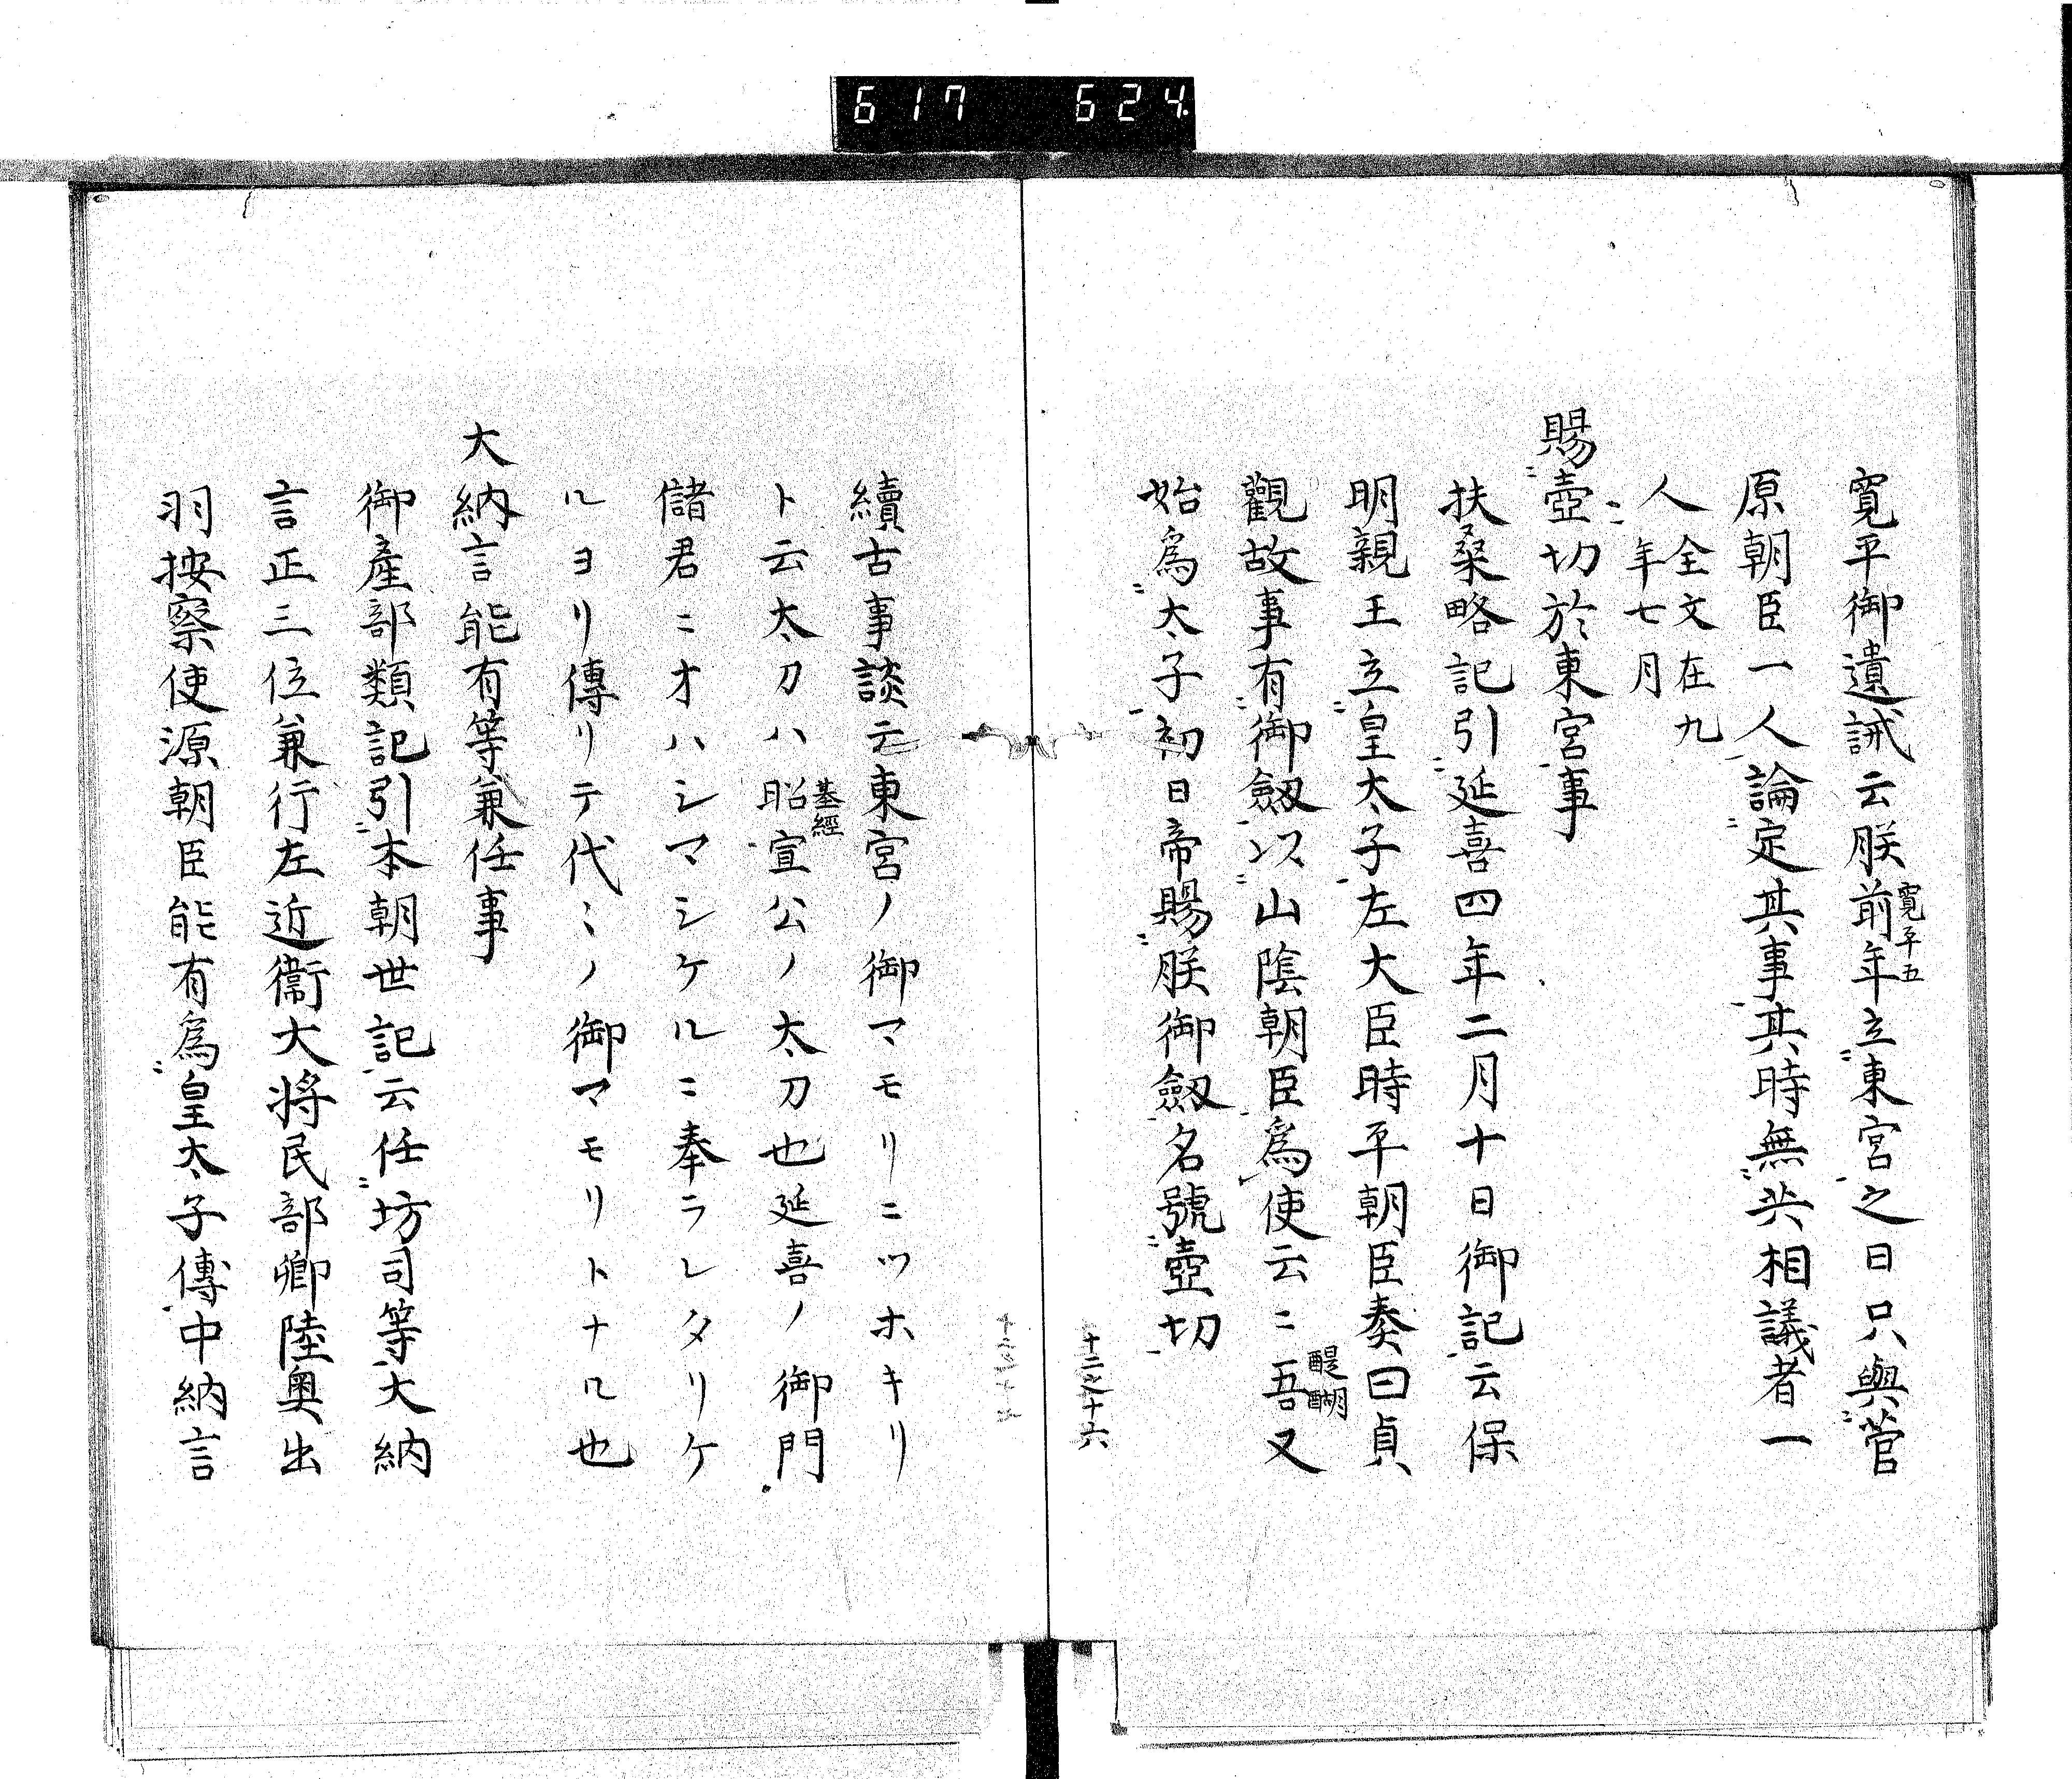 617 624
寛平御遺誡云朕前年立東宮之日只與菅
寛平五
原朝臣一人論定其事其時無共相議者一
人全文在九
年七月
賜壺切於東宮事
扶桑略記引延喜四年二月十日御記云保
明親王立皇太子左大臣時平朝臣奏曰貞
觀故事有御劔以山陰朝臣爲使云ニ吾又
醍醐
始爲太子初日帝賜朕御劔名號壺切
十二之十六
續古事談云東宮ノ御マモリニツホキリ
ト云太刀ハ昭宣公ノ太刀也延喜ノ御門
基經
儲君ニオハシマシケルニ奉ラレタリケ
ルヨリ傳リテ代ミノ御マモリトナル也
大納言能有等兼任事
御産部類記引本朝世記云任坊司等大納
言正三位兼行左近衞大将民部卿陸奥出
羽按察使源朝臣能有爲皇太子傳中納言